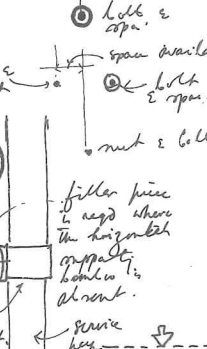 bolt &
spac.
space availa
&
bolt
& spac.
nut & bolt
filler piece
is reqd where
the horizontal
support
is
absent.
service